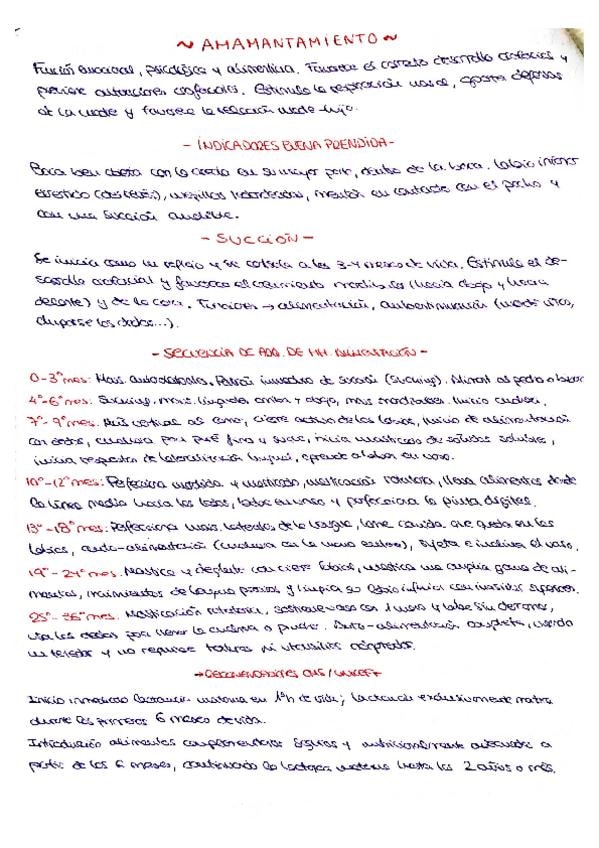 ~ AMAMANTAMIENTO ~
Función emocional, psicológica y alimenticia. Favorece el correcto desarrollo orofacial y
previene alteraciones orofaciales. Estimula la respiración nasal, aporta defensas
de la madre y favorece la relación madre-hijo.
- INDICADORES BUENA PRENDIDA -
Boca bien abierta con la areola en su mayor parte, dentro de la boca. Labio inferior
evertido (hacia fuera), mejillas redondeadas, mentón en contacto con el pecho y
con una succión audible.
- SUCCIÓN -
Se inicia como un reflejo y se controla a los 3-4 meses de vida. Estimula el de-
sarrollo orofacial y favorece el crecimiento mandibular (hacia abajo y hacia
delante) y de la cara. Funciones → alimentación, autoestimulación
chuparse los dedos...).
- SECUENCIA DE ADQ. DE HH. ALIMENTACIÓN -
0-3º mes: Patrón inmaduro de succión (Sucking). Alimont. al pecho o biberón
4º-6º mes: Sucking, mov. lengua arriba y abajo, mov. mandibulares. Inicio cuchara.
7º-9º mes: cierre activo de los labios, inicio de alimentación
con dedos, cuchara para puré fino y suave, inicia masticado de sólidos solubles,
inicia respuestas de lateralización lingual, aprende a beber en vaso.
10º-12º mes: Perfecciona mordida y masticado, masticación rotatoria, lleva alimentos desde
la línea media hacia los lados, bebe en vaso y perfecciona la pinza digital.
13º-18º mes: Perfecciona movs. laterales de la lengua, lame comida que queda en los
labios, auto-alimentación (cuchara en la mano entera), sujeta e inclina el vaso.
19º-24º mes. Mastica y deglute con cierre labial, mastica una amplia gama de ali-
mentos, movimientos de lengua precisos y limpia su labio inferior con incisivos superiores.
25º-36º mes. Masticación rotatoria, sostiene vaso con 1 mano y bebe sin derramar,
usa los dedos para llenar la cuchara o pinchar. Auto-alimentación completa, usando
un tenedor y no requiere texturas ni utensilios adaptados.
→ RECOMENDACIONES OMS/UNICEF
Inicio inmediato lactancia materna en 1ªh de vida; lactancia exclusivamente materna
durante los primeros 6 meses de vida.
Introducción alimentos complementarios seguros y nutricionalmente adecuados a
partir de los 6 meses, continuando la lactancia materna hasta los 2 años o más.